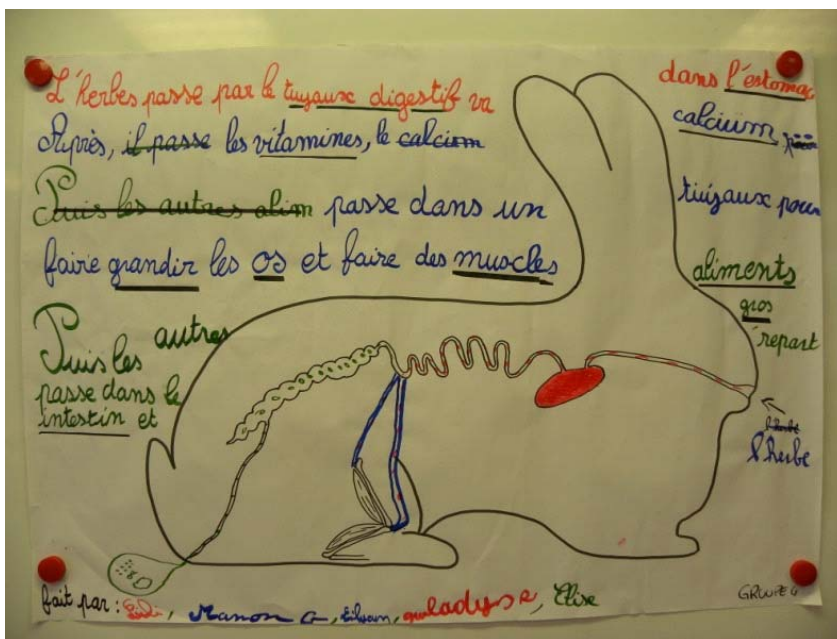 L'herbes passe par le tuyaux digestif va dans l'estomac
Après, il passe les vitamines, le calcium calcium
Puis les autres alim passe dans un tuyaux pour
faire grandir les os et faire des muscles
Puis les autres aliments
passe dans le gros
intestin et repart
l'herbe
l'herbe
fait par : Manon G, gwladys, Elise
GROUPE 4